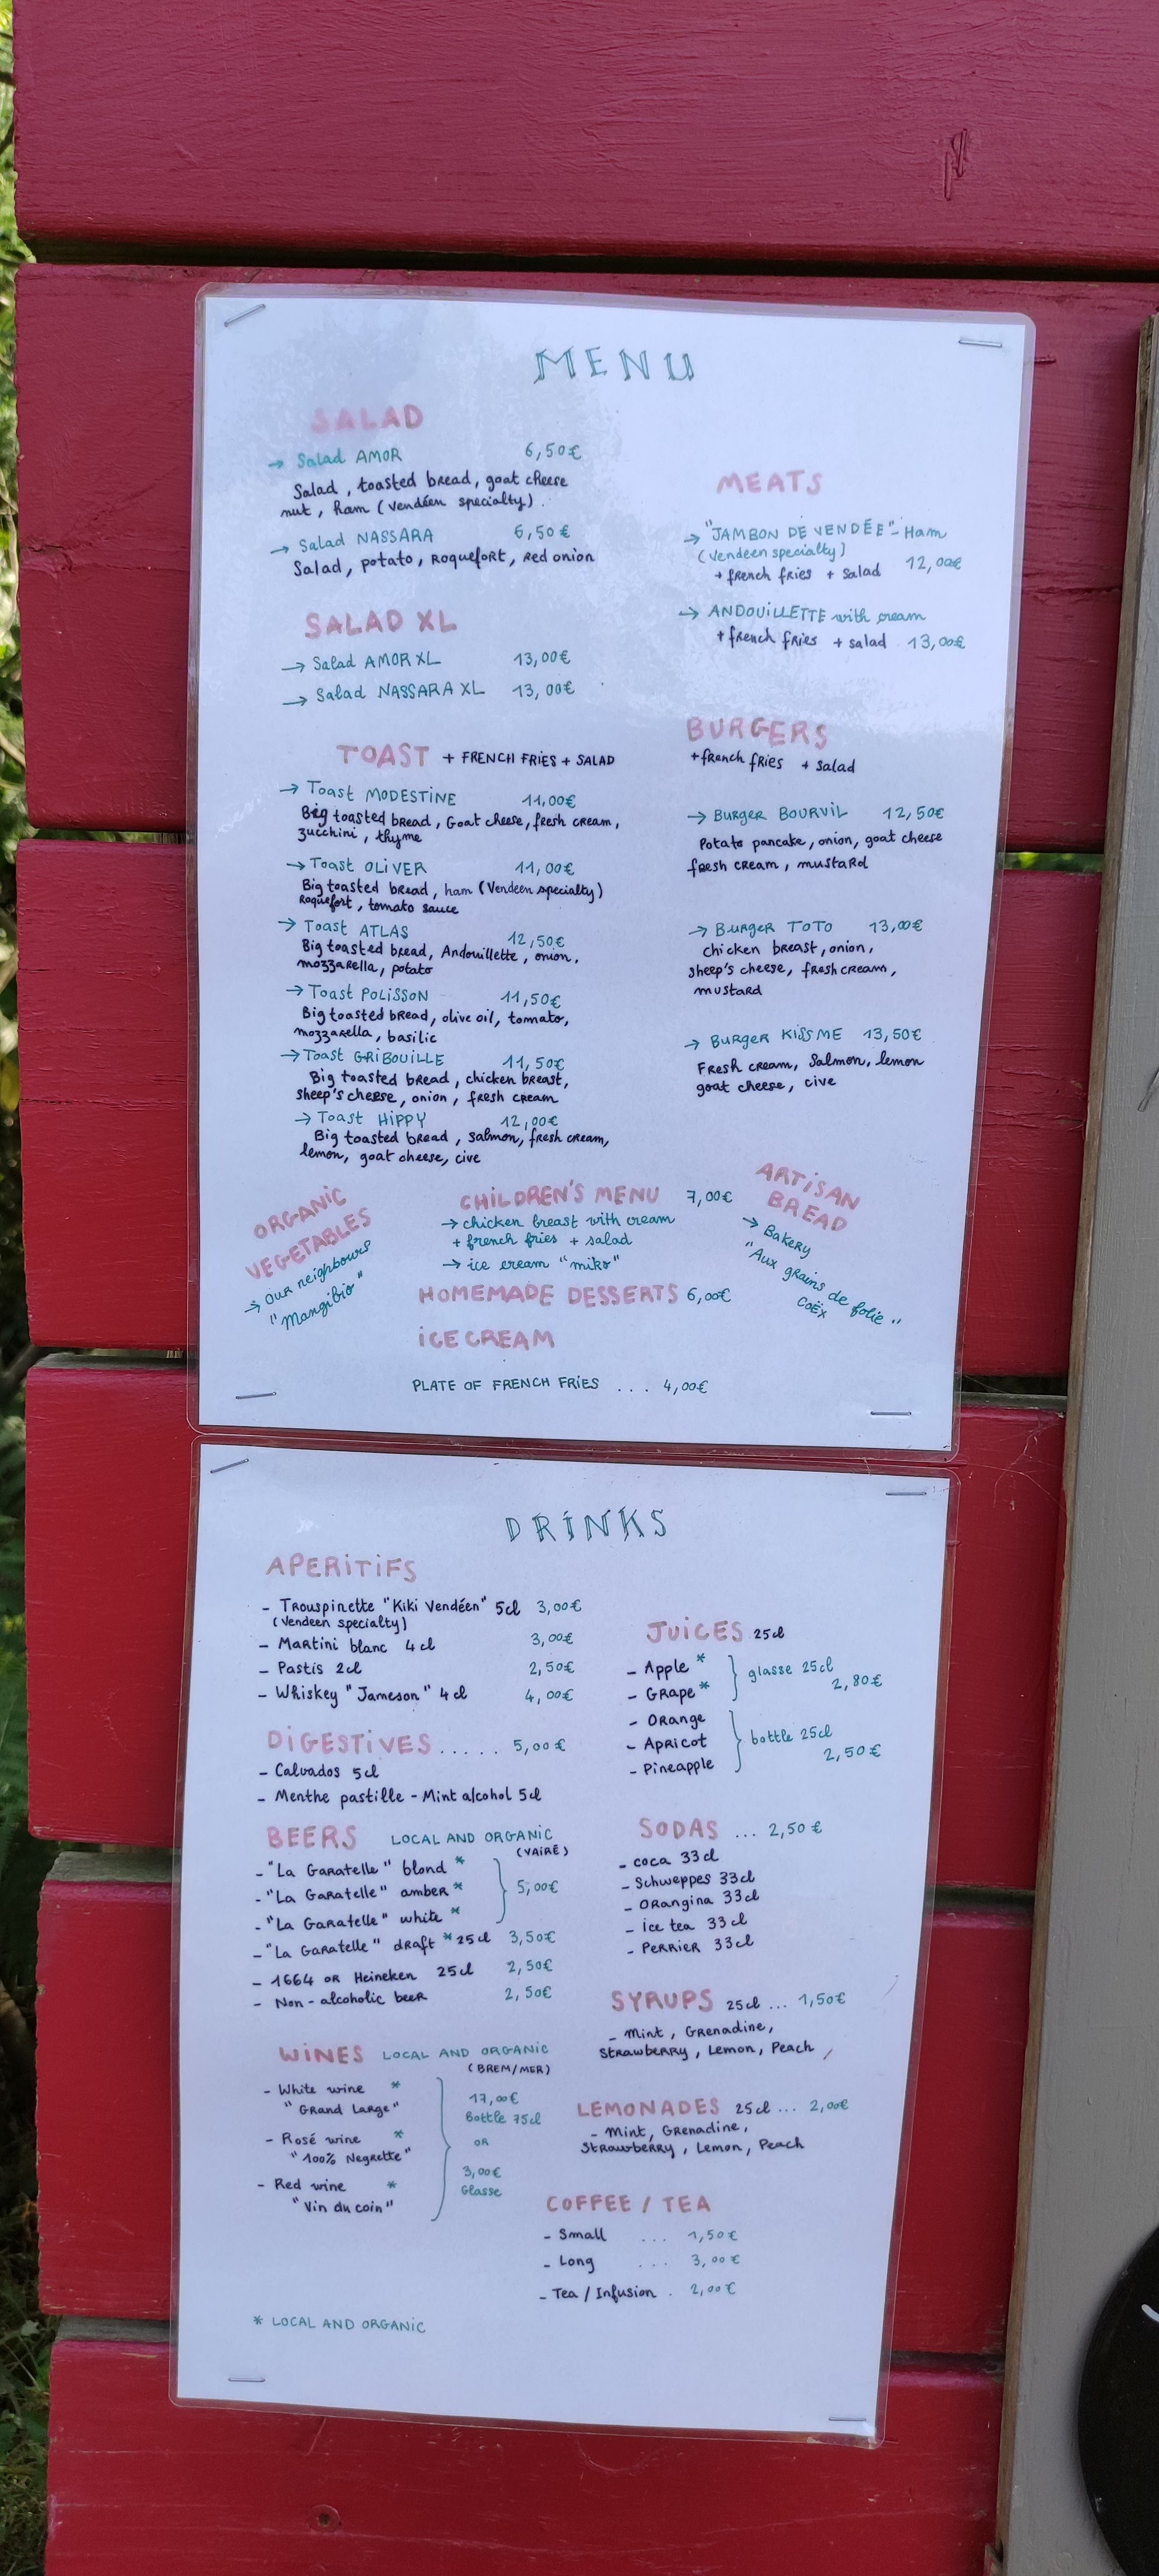 MENU
SALAD
→ Salad AMOR 6,50€
Salad, toasted bread, goat cheese
nut, ham (vendéen specialty).
→ Salad NASSARA 6,50€
Salad, potato, Roquefort, red onion
SALAD XL
→ Salad AMOR XL 13,00€
→ Salad NASSARA XL 13,00€
TOAST + FRENCH FRIES + SALAD
→ Toast MODESTINE 11,00€
Big toasted bread, Goat cheese, fresh cream,
zucchini, thyme
→ Toast OLIVER 11,00€
Big toasted bread, ham (Vendeen specialty)
Roquefort, tomato sauce
→ Toast ATLAS 12,50€
Big toasted bread, Andouillette, onion,
mozzarella, potato
→ Toast POLISSON 11,50€
Big toasted bread, olive oil, tomato,
mozzarella, basilic
→ Toast GRIBOUILLE 11,50€
Big toasted bread, chicken breast,
sheep's cheese, onion, fresh cream
→ Toast HIPPY 12,00€
Big toasted bread, salmon, fresh cream,
lemon, goat cheese, cive
MEATS
→ "JAMBON DE VENDÉE" - Ham
(Vendeen specialty)
+ french fries + salad 12,00€
→ ANDOUILLETTE with cream
+ french fries + salad 13,00€
BURGERS
+ french fries + salad
→ Burger BOURVIL 12,50€
Potato pancake, onion, goat cheese
fresh cream, mustard
→ Burger TOTO 13,00€
chicken breast, onion,
sheep's cheese, fresh cream,
mustard
→ Burger KISS ME 13,50€
Fresh cream, Salmon, lemon
goat cheese, cive
ORGANIC
VEGETABLES
→ our neighbours
"Mangibio"
CHILDREN'S MENU 7,00€
→ chicken breast with cream
+ french fries + salad
→ ice cream "miko"
HOMEMADE DESSERTS 6,00€
ICE CREAM
PLATE OF FRENCH FRIES ... 4,00€
ARTISAN
BREAD
→ Bakery
"Aux grains de folie"
COËX
DRINKS
APERITIFS
- Trouspinette "Kiki Vendéen" 5cl 3,00€
(Vendeen specialty)
- Martini blanc 4cl 3,00€
- Pastis 2cl 2,50€
- Whiskey "Jameson" 4cl 4,00€
DIGESTIVES ..... 5,00€
- Calvados 5cl
- Menthe pastille - Mint alcohol 5cl
BEERS LOCAL AND ORGANIC
(VAIRÉ)
- "La Garatelle" blond *
- "La Garatelle" amber * 5,00€
- "La Garatelle" white *
- "La Garatelle" draft * 25cl 3,50€
- 1664 or Heineken 25cl 2,50€
- Non-alcoholic beer 2,50€
WINES LOCAL AND ORGANIC
(BREM/MER)
- White wine *
"Grand Large"
- Rosé wine *
"100% Negrette"
- Red wine *
"Vin du coin"
17,00€
Bottle 75cl
OR
3,00€
Glasse
* LOCAL AND ORGANIC
JUICES 25cl
- Apple *
- Grape *
glasse 25cl
2,80€
- Orange
- Apricot
- Pineapple
bottle 25cl
2,50€
SODAS ... 2,50€
- coca 33cl
- Schweppes 33cl
- Orangina 33cl
- ice tea 33cl
- PERRIER 33cl
SYRUPS 25cl ... 1,50€
- Mint, Grenadine,
Strawberry, Lemon, Peach
LEMONADES 25cl ... 2,00€
- Mint, Grenadine,
Strawberry, Lemon, Peach
COFFEE / TEA
- Small ... 1,50€
- Long ... 3,00€
- Tea / Infusion . 2,00€